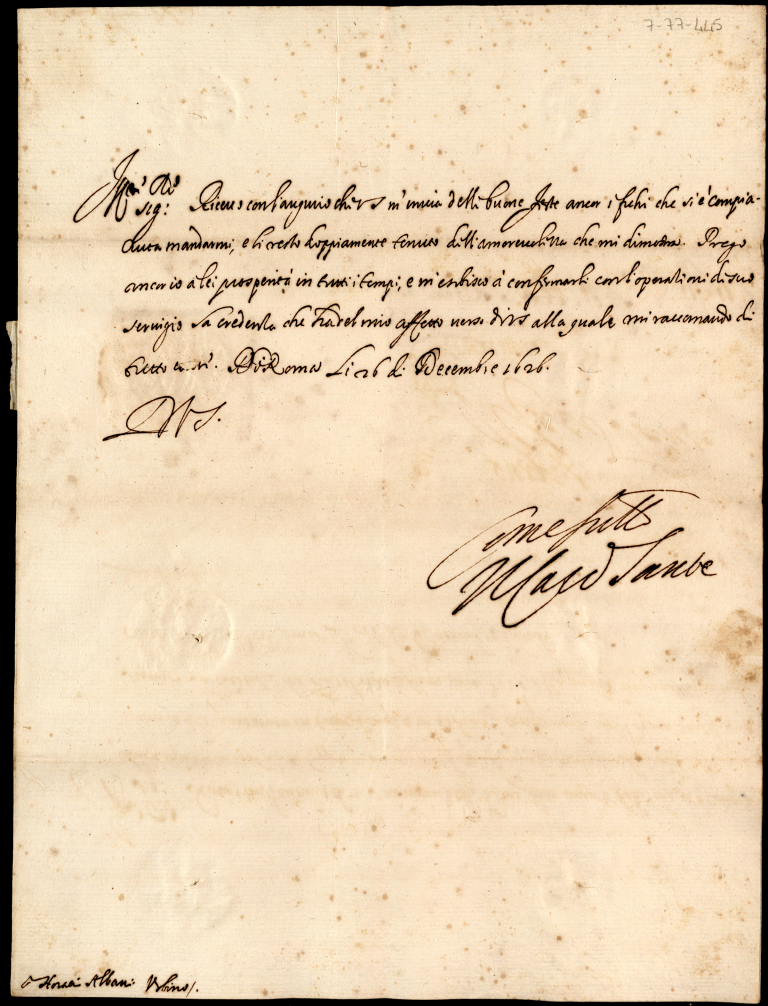 7-77-445
sig.r Ricevo con l'augurio che VS m'invia delle buone feste ancor i fichi che si è compia-
ciuta mandarmi, e li resto doppiamente tenuto dell'amorevolezza che mi dimostra. Prego
ancor io a lei prosperità in tutti i tempi, e m'esibisco à confermarli con l'operationi di suo
servigio la credenza che ha del mio affetto verso di VS alla quale mi raccomando di
tutto Di Roma li 26 di Decembre 1626.
Di VS.
Come frãllo
Albani Urbino